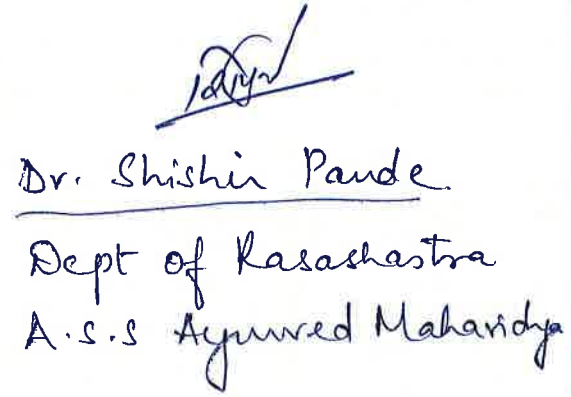 Dr. Shishir Pande.
Dept of Rasashastra
A.S.S Ayurved Mahavidya